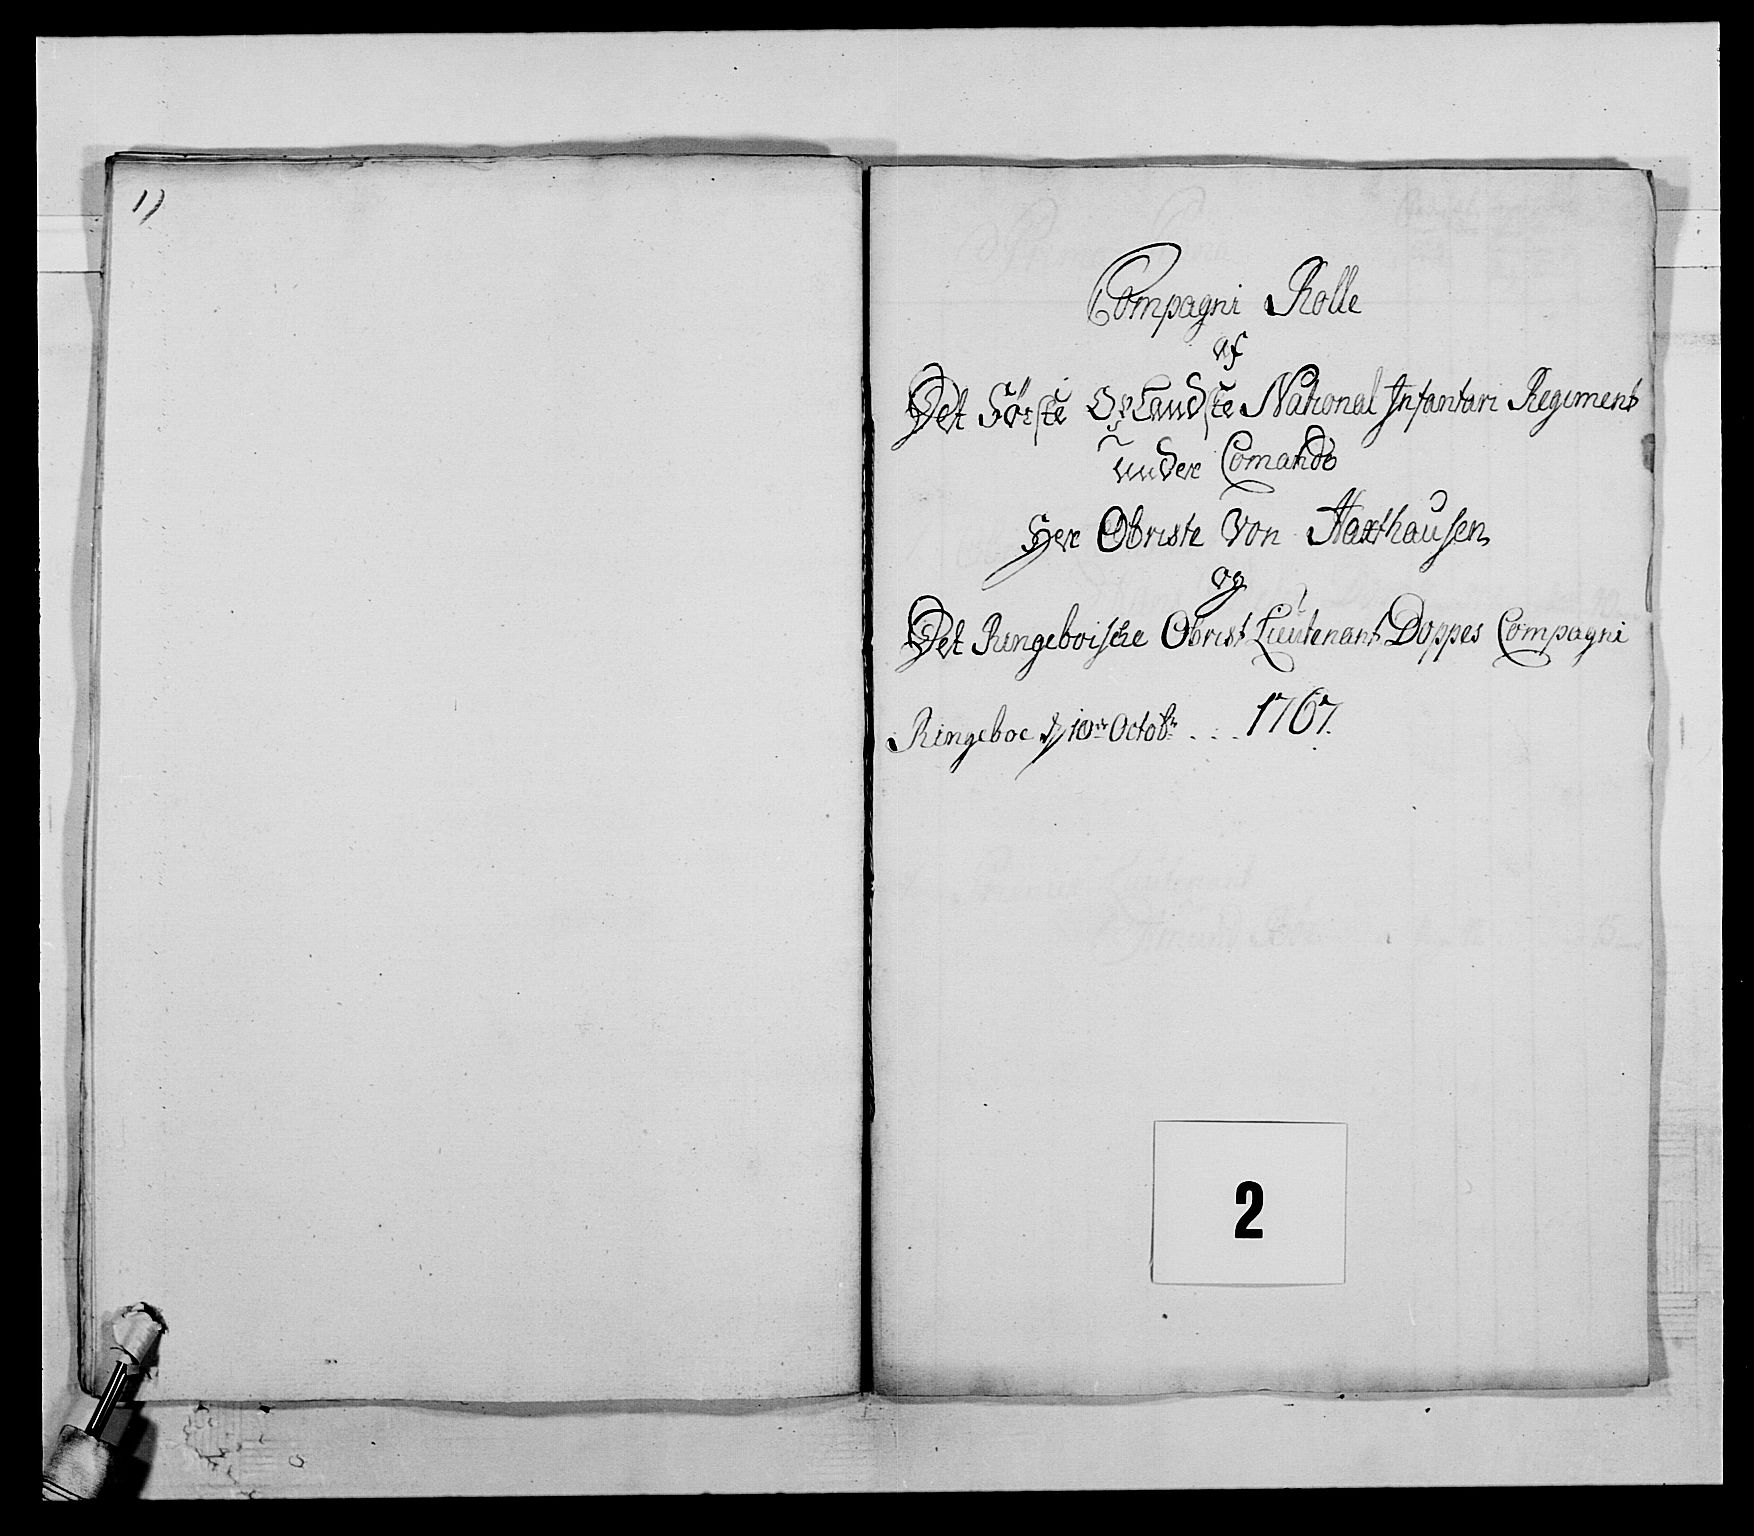 1)
Compagni Rolle
af
Det Förste Oplandske National Infantari Regiment
under Comando
Herr Obriste Von Haxthausen
og
Det Ringeboiske Obrist Lieutenant Doppes Compagni
Ringeboe d 10de Octobr ... 1767.
2